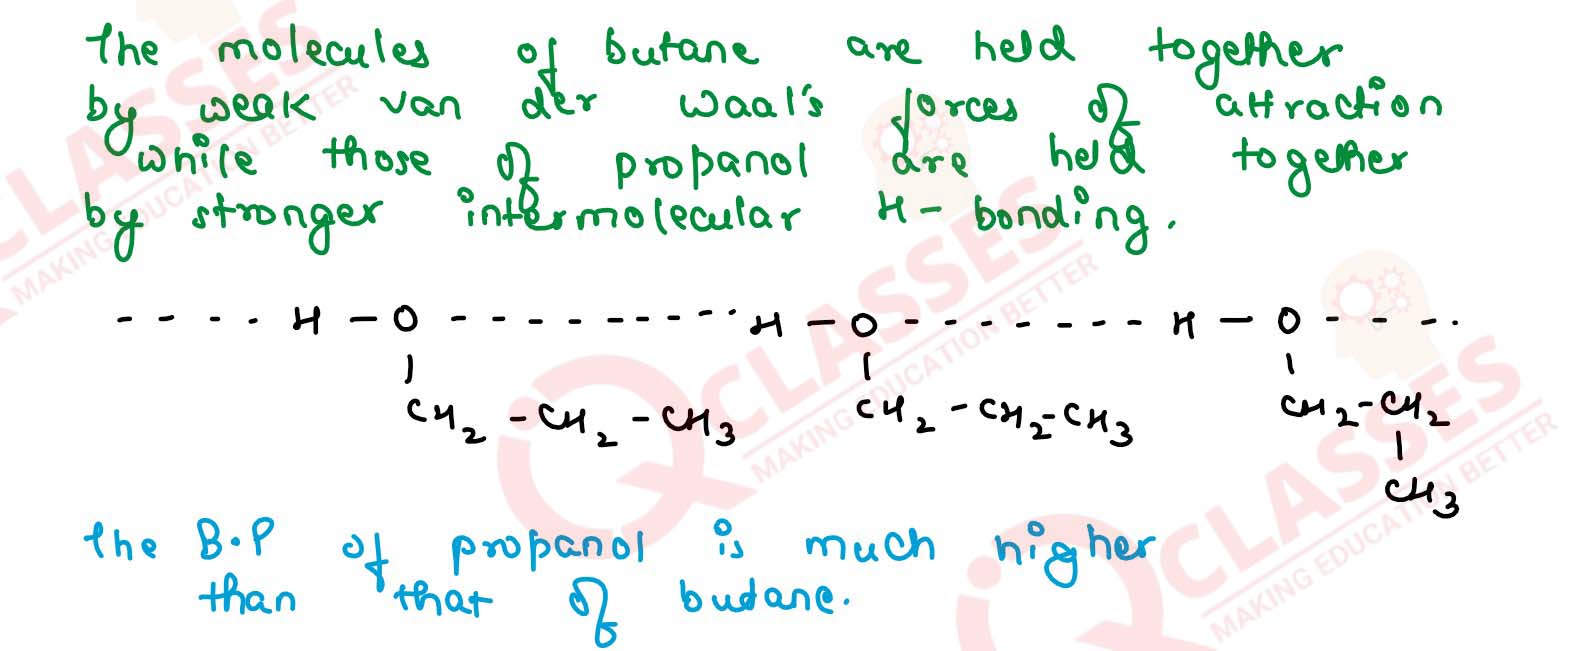 The molecules of butane are held together
by weak van der waal's forces of attraction
while those of propanol are held together
by stronger intermolecular H-bonding.
---- H - O --------- H - O ------- H - O ----
| | |
CH2 - CH2 - CH3 CH2 - CH2 - CH3 CH2 - CH2
|
CH3
The B.P of propanol is much higher
than that of butane.
CLASSES
MAKING EDUCATION BETTER
IQ CLASSES
MAKING EDUCATION BETTER
IQ CLASSES
MAKING EDUCATION BETTER